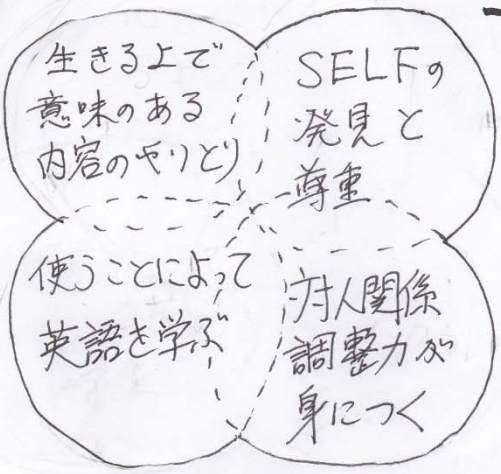 生きる上で
意味のある
内容のやりとり
SELFの
発見と
尊重
使うことによって
英語を学ぶ
対人関係
調整力が
身につく